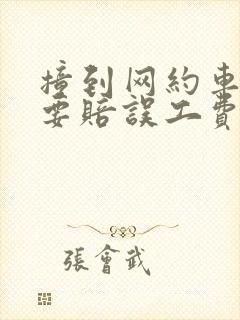 撞到网約車
要賠誤工費
張會武